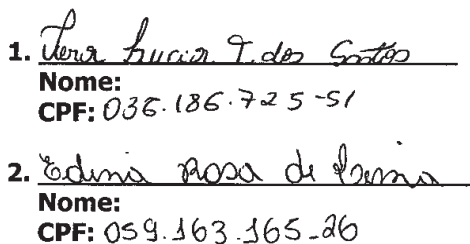 1. Vera Lucia T. dos Santos
Nome:
CPF: 036.186.725-51
2. Edina Rosa de
Nome:
CPF: 059.163.165-26